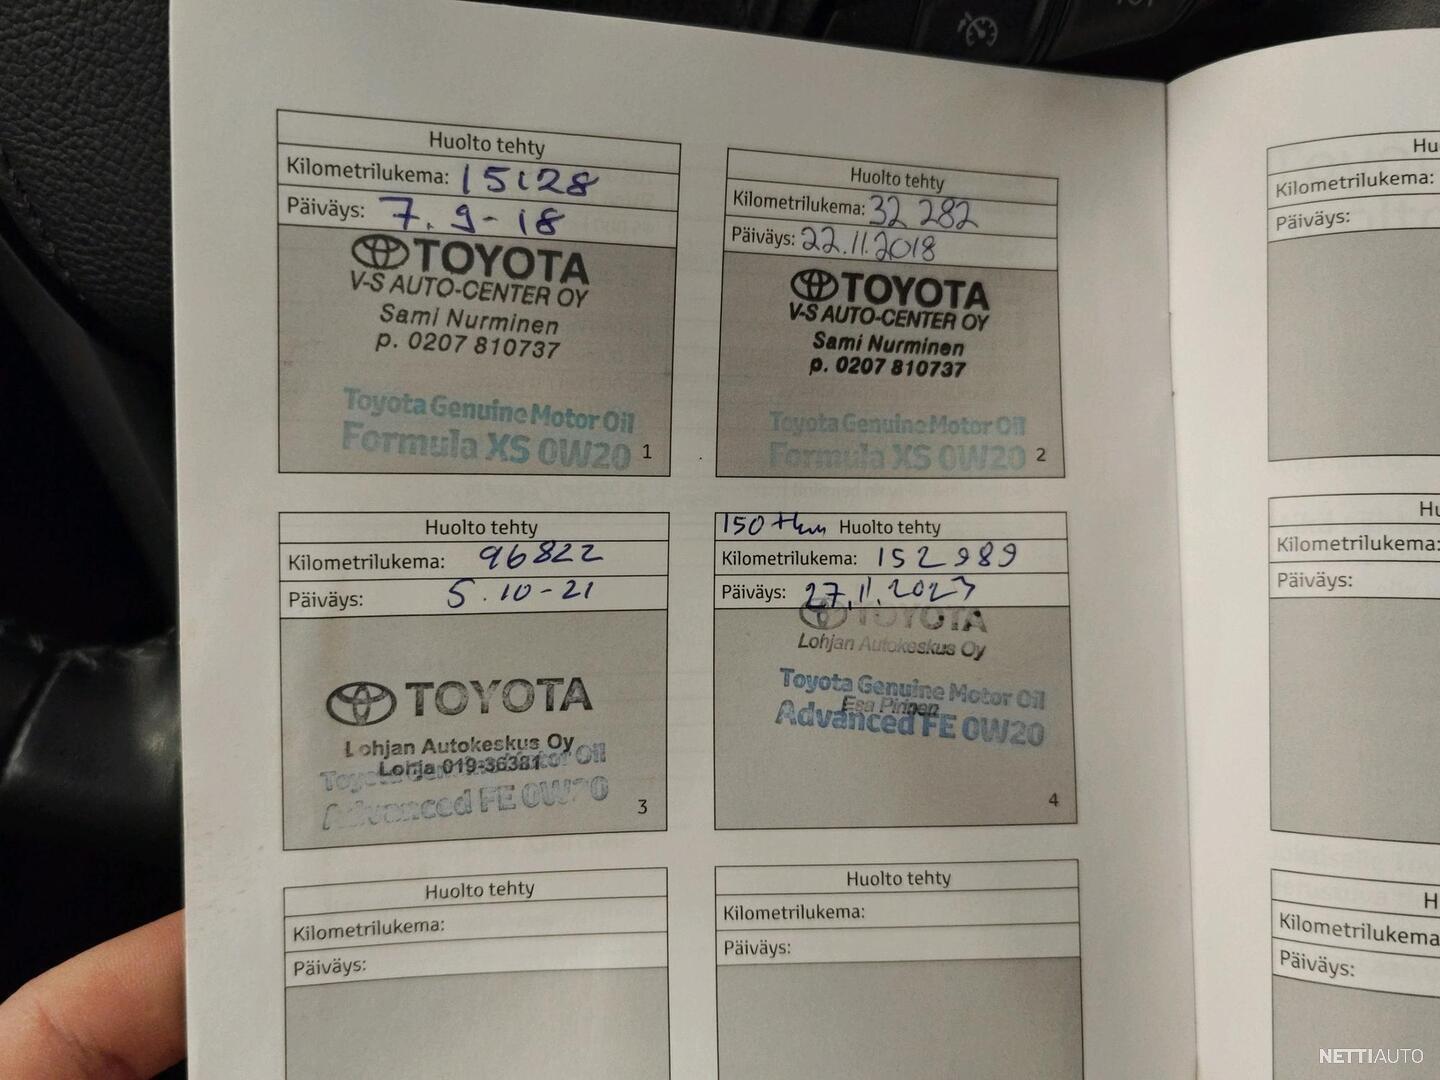 Huolto tehty
Kilometrilukema: 15128
Päiväys: 7.9-18
TOYOTA
V-S AUTO-CENTER OY
Sami Nurminen
p. 0207 810737
Toyota Genuine Motor Oil
Formula XS 0W20
1
Huolto tehty
Kilometrilukema: 32 282
Päiväys: 22.11.2018
TOYOTA
V-S AUTO-CENTER OY
Sami Nurminen
p. 0207 810737
Toyota Genuine Motor Oil
Formula XS 0W20
2
Huolto tehty
Kilometrilukema: 96822
Päiväys: 5.10-21
TOYOTA
Lohjan Autokeskus Oy
Lohja 019-36381
Toyota Genuine Motor Oil
Advanced FE 0W20
3
150 tkm Huolto tehty
Kilometrilukema: 152989
Päiväys: 27.11.2023
TOYOTA
Lohjan Autokeskus Oy
Toyota Genuine Motor Oil
Esa Pirinen
Advanced FE 0W20
4
Huolto tehty
Kilometrilukema:
Päiväys:
Huolto tehty
Kilometrilukema:
Päiväys:
Hu
Kilometrilukema:
Päiväys:
Hu
Kilometrilukema:
Päiväys:
H
Kilometrilukema
Päiväys:
NETTIAUTO